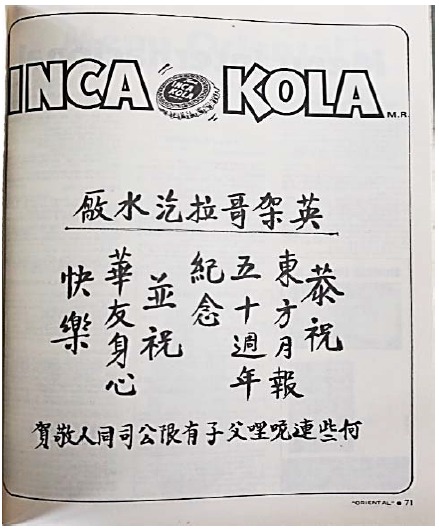 INCA KOLA
INCA KOLA
M.R.
英架哥拉汽水厰
恭祝
東方月報
五十週年
紀念
並祝
華友身心
快樂
何些連哩父子有限公司同人敬賀
"ORIENTAL" ● 71